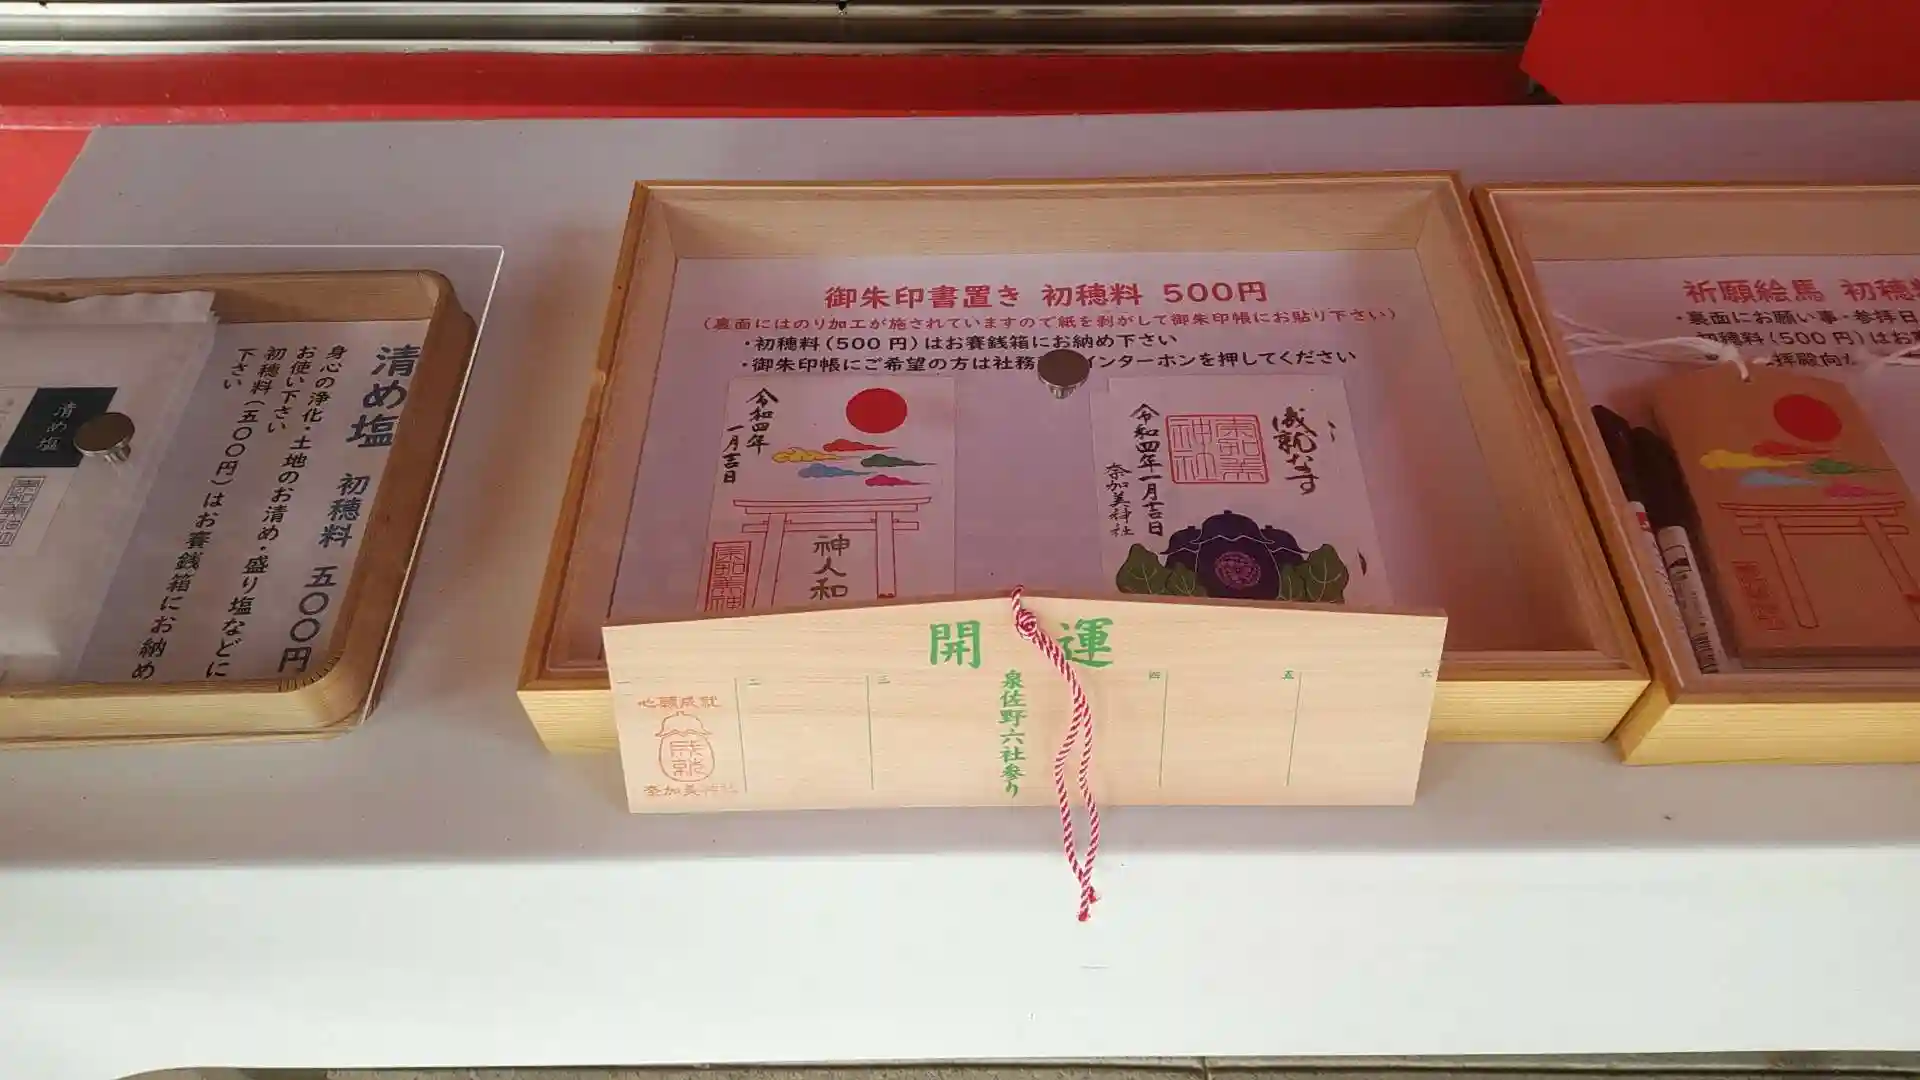 清め塩 初穂料 五〇〇円
身心の浄化・土地のお清め・盛り塩などに
お使い下さい
初穂料(五〇〇円)はお賽銭箱にお納め
下さい
清め塩
御朱印書置き 初穂料 500円
(裏面にはのり加工が施されていますので紙を剥がして御朱印帳にお貼り下さい)
・初穂料(500円)はお賽銭箱にお納め下さい
・御朱印帳にご希望の方は社務 インターホンを押してください
令和四年
一月吉日
神人和
成就なす
奈加美
神社
令和四年一月吉日
奈加美神社
開運
泉佐野六社参り
一
二
三
四
五
六
心願成就
成就
奈加美神社
祈願絵馬 初穂料
・裏面にお願い事・参拝日
初穂料(500円)はお
拝殿向か